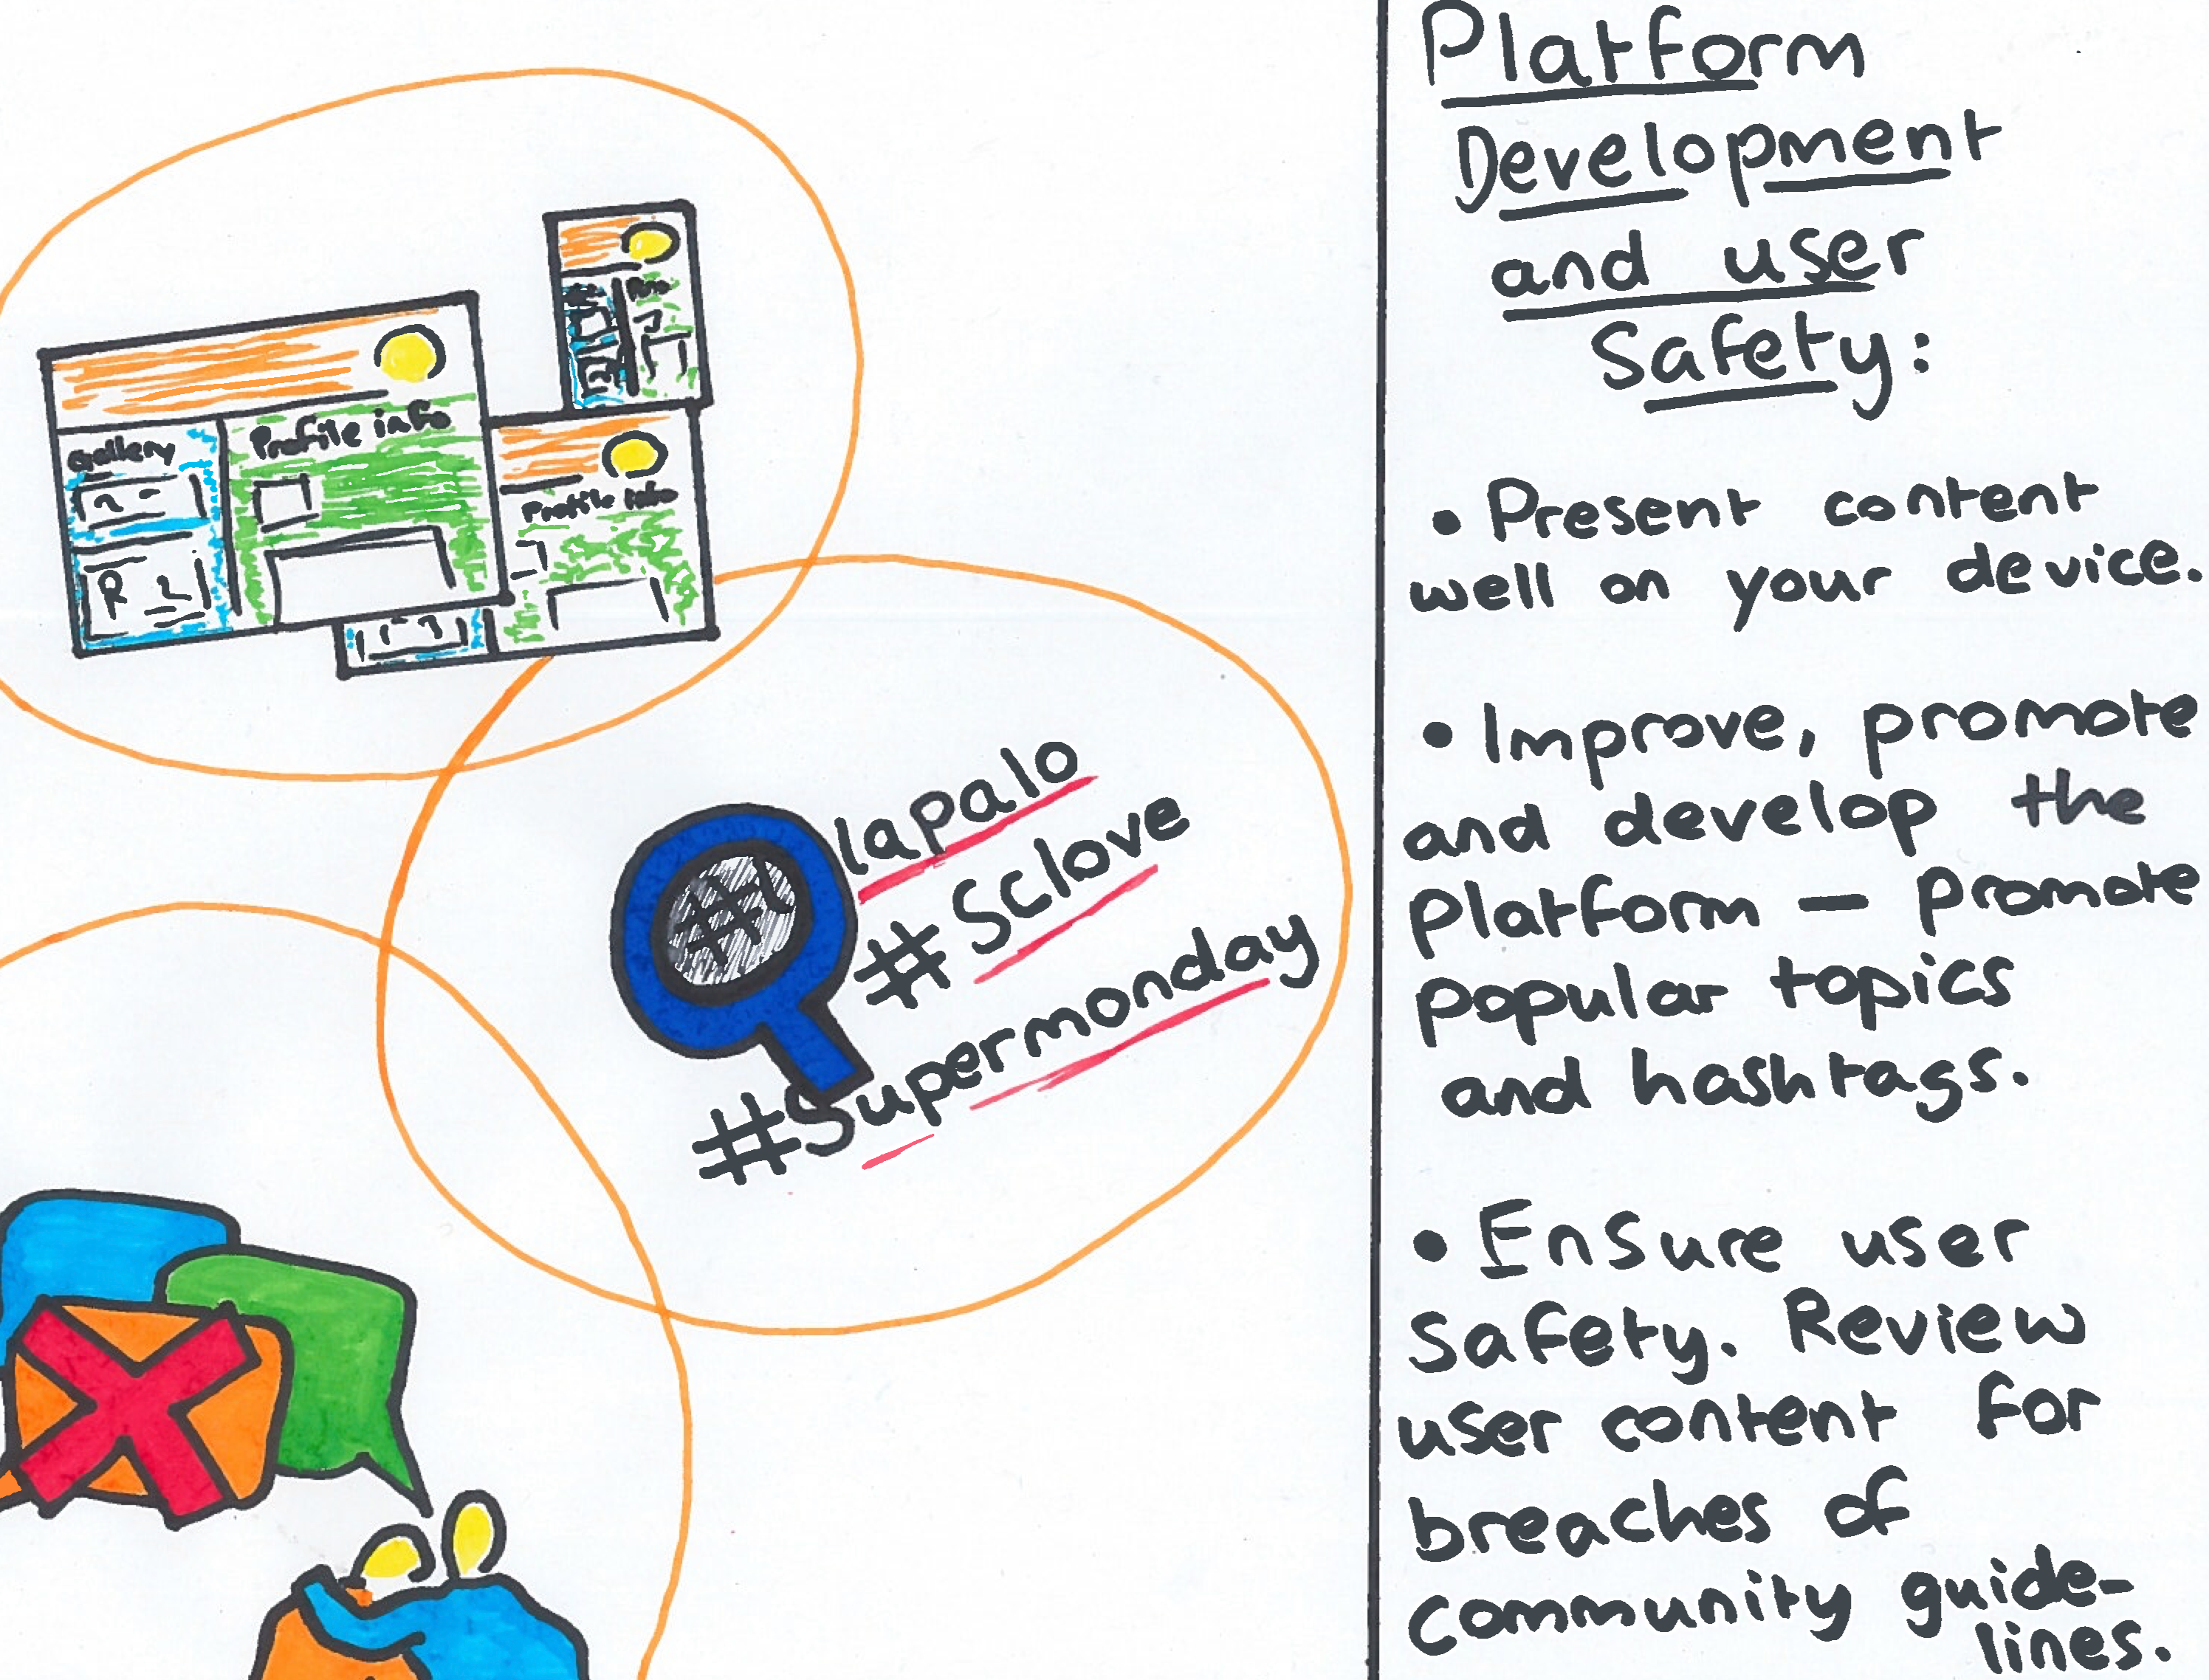 Gallery
Profile info
Profile info
#
lapalo
#Sclove
#Supermonday
Platform
Development
and user
Safety:
• Present content
well on your device.
• Improve, promote
and develop the
Platform — Promote
popular topics
and hashtags.
• Ensure user
Safety. Review
user content for
breaches of
community guide-
lines.